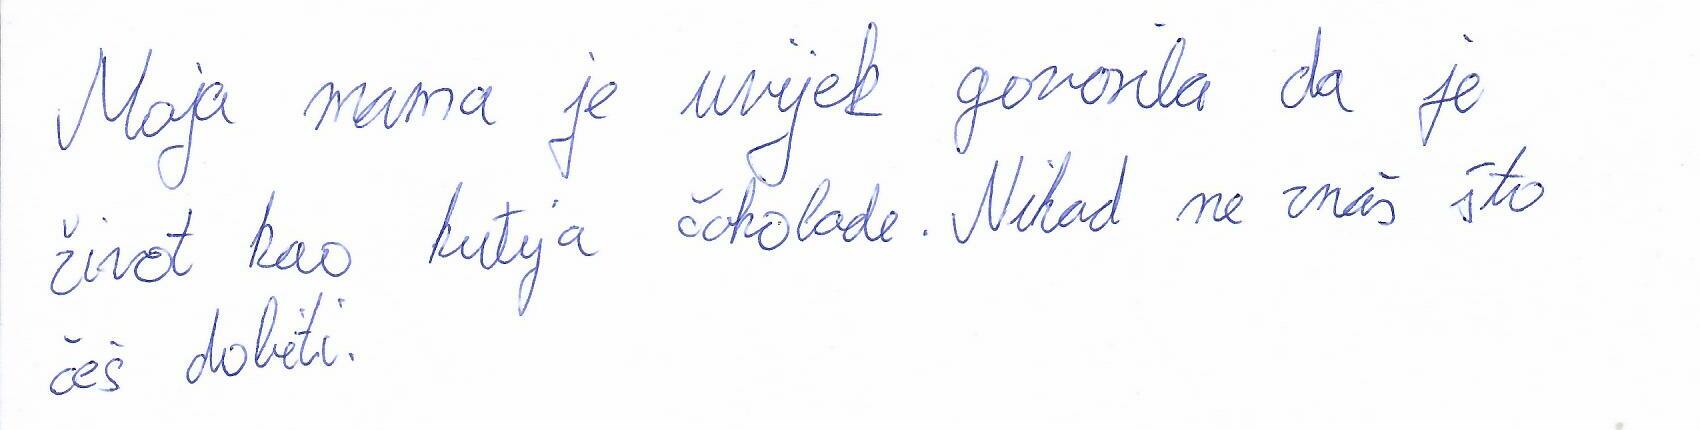 Moja mama je uvijek govorila da je
život kao kutija čokolade. Nikad ne znaš što
ćeš dobiti.